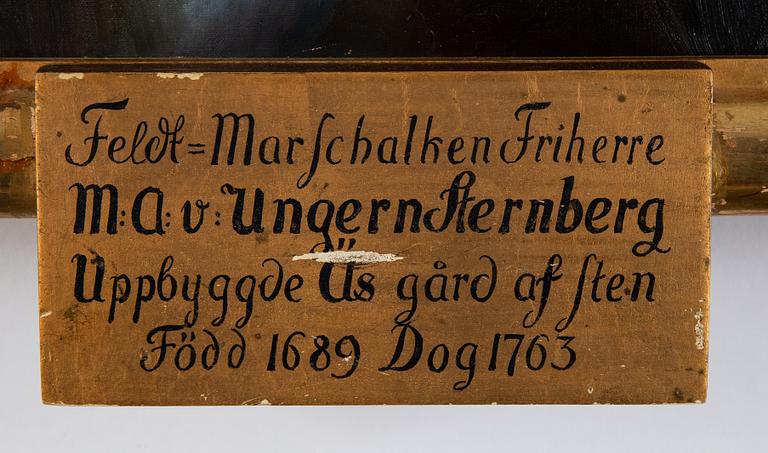 Feldt=Marſchalken Friherre
M:A:v:UngernSternberg
Uppbyggde Äs gård af ſten
Född 1689 Dog 1763